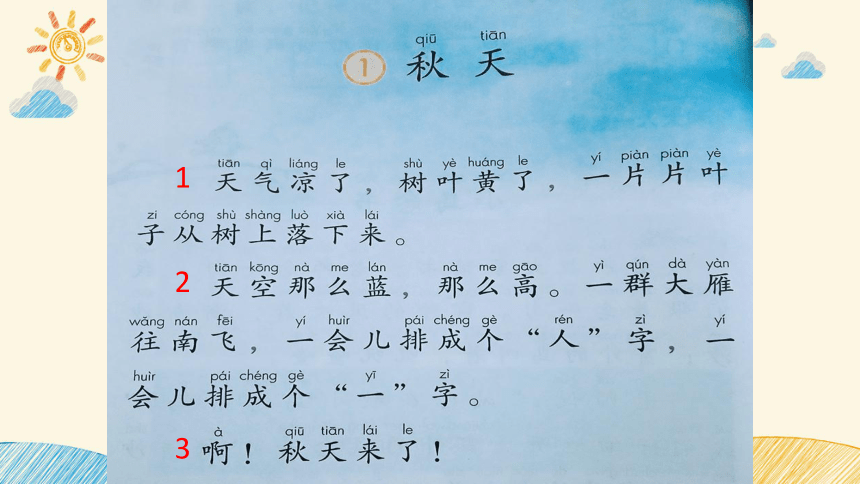 qiū tiān
1 秋 天
tiān qì liáng le shù yè huáng le yí piàn piàn yè
1 天气凉了，树叶黄了，一片片叶
zi cóng shù shàng luò xià lái
子从树上落下来。
tiān kōng nà me lán nà me gāo yì qún dà yàn
2 天空那么蓝，那么高。一群大雁
wǎng nán fēi yí huìr pái chéng gè rén zì yí
往南飞，一会儿排成个“人”字，一
huìr pái chéng gè yī zì
会儿排成个“一”字。
à qiū tiān lái le
3 啊！秋天来了！